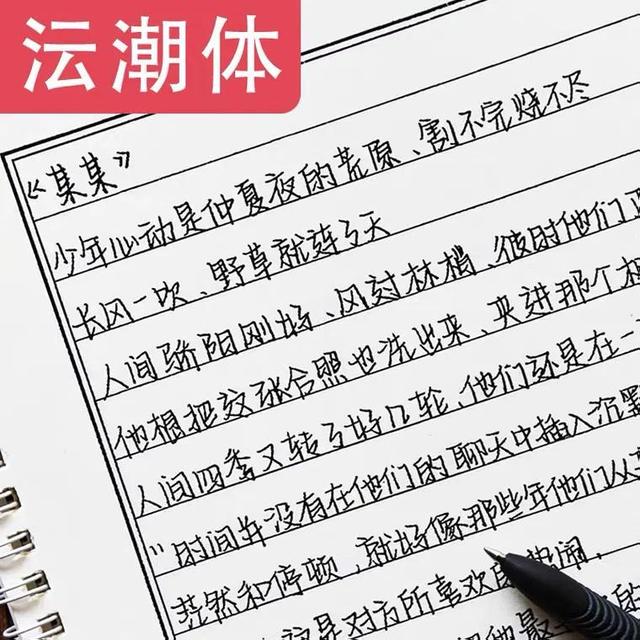 沄潮体
《某某》
少年心动是仲夏夜的荒原、割不完烧不尽
长风一吹、野草就连了天
人间骄阳刚好、风过林梢、彼时他们正
他想把这张合照也洗出来、夹进那个相
人间四季又转了好几轮、他们还是在一
"时间并没有在他们的聊天中插入沉默
茫然和停顿，就好像那些年他们从
对方所喜欢的热闹，
的